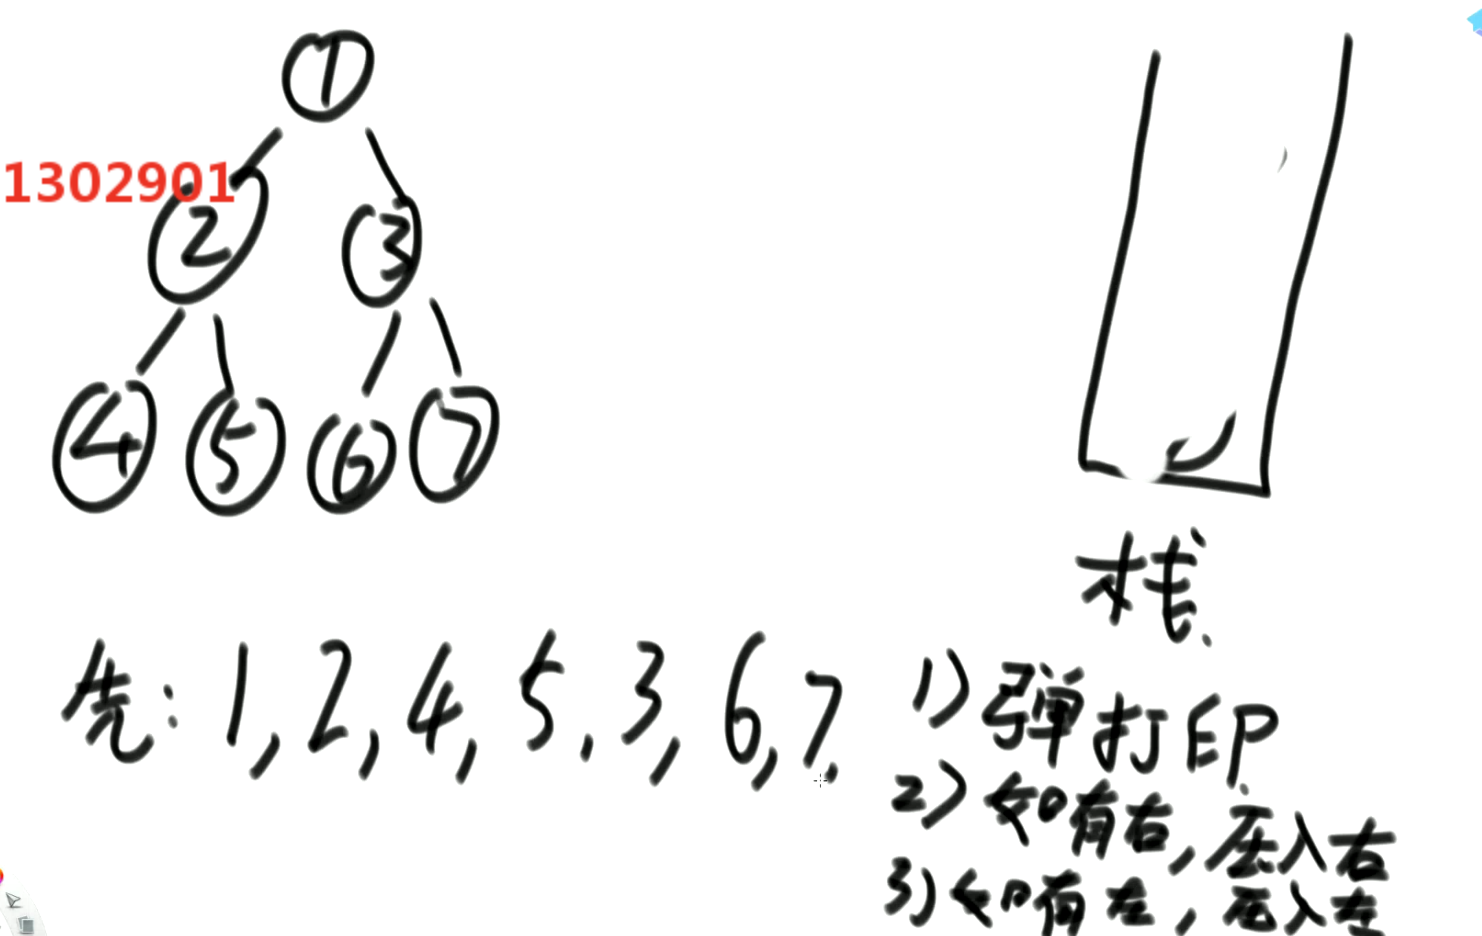 1
1302901
2 3
4 5 6 7
栈.
先: 1, 2, 4, 5, 3, 6, 7.
1) 弹打印.
2) 如有右, 压入右
3) 如有左, 压入左